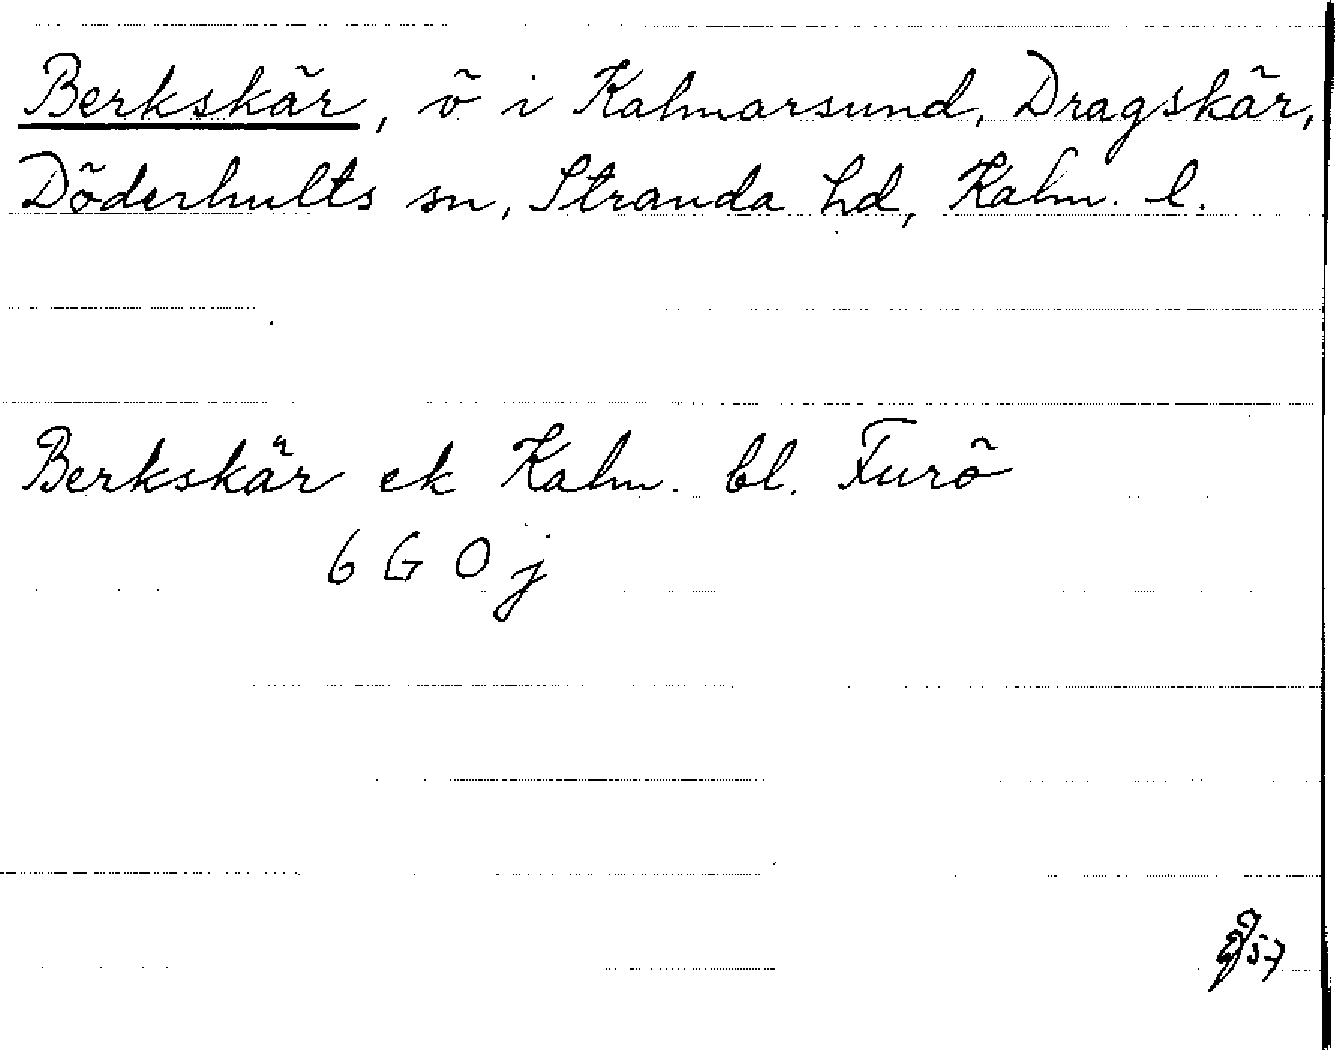 Berkskär, ö i Kalmarsund, Dragskär,
Döderhults sn, Stranda hd, Kalm. l.
Berkskär ek Kalm. bl. Furö
6 G O j